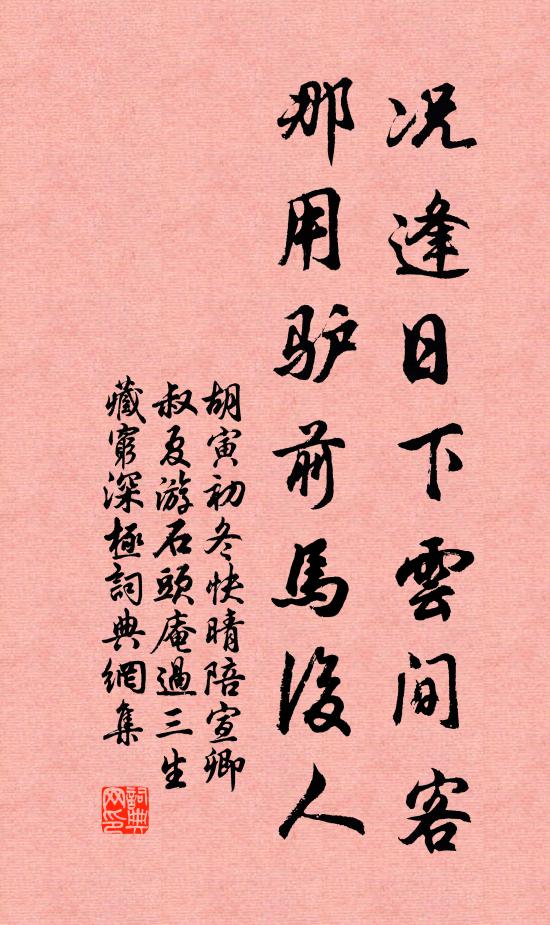 况逢日下雲间客
那用驴前馬後人
胡寅初冬快晴陪宣卿
叔夏游石頭庵過三生
藏窮深極詞典網集
詞典
网印